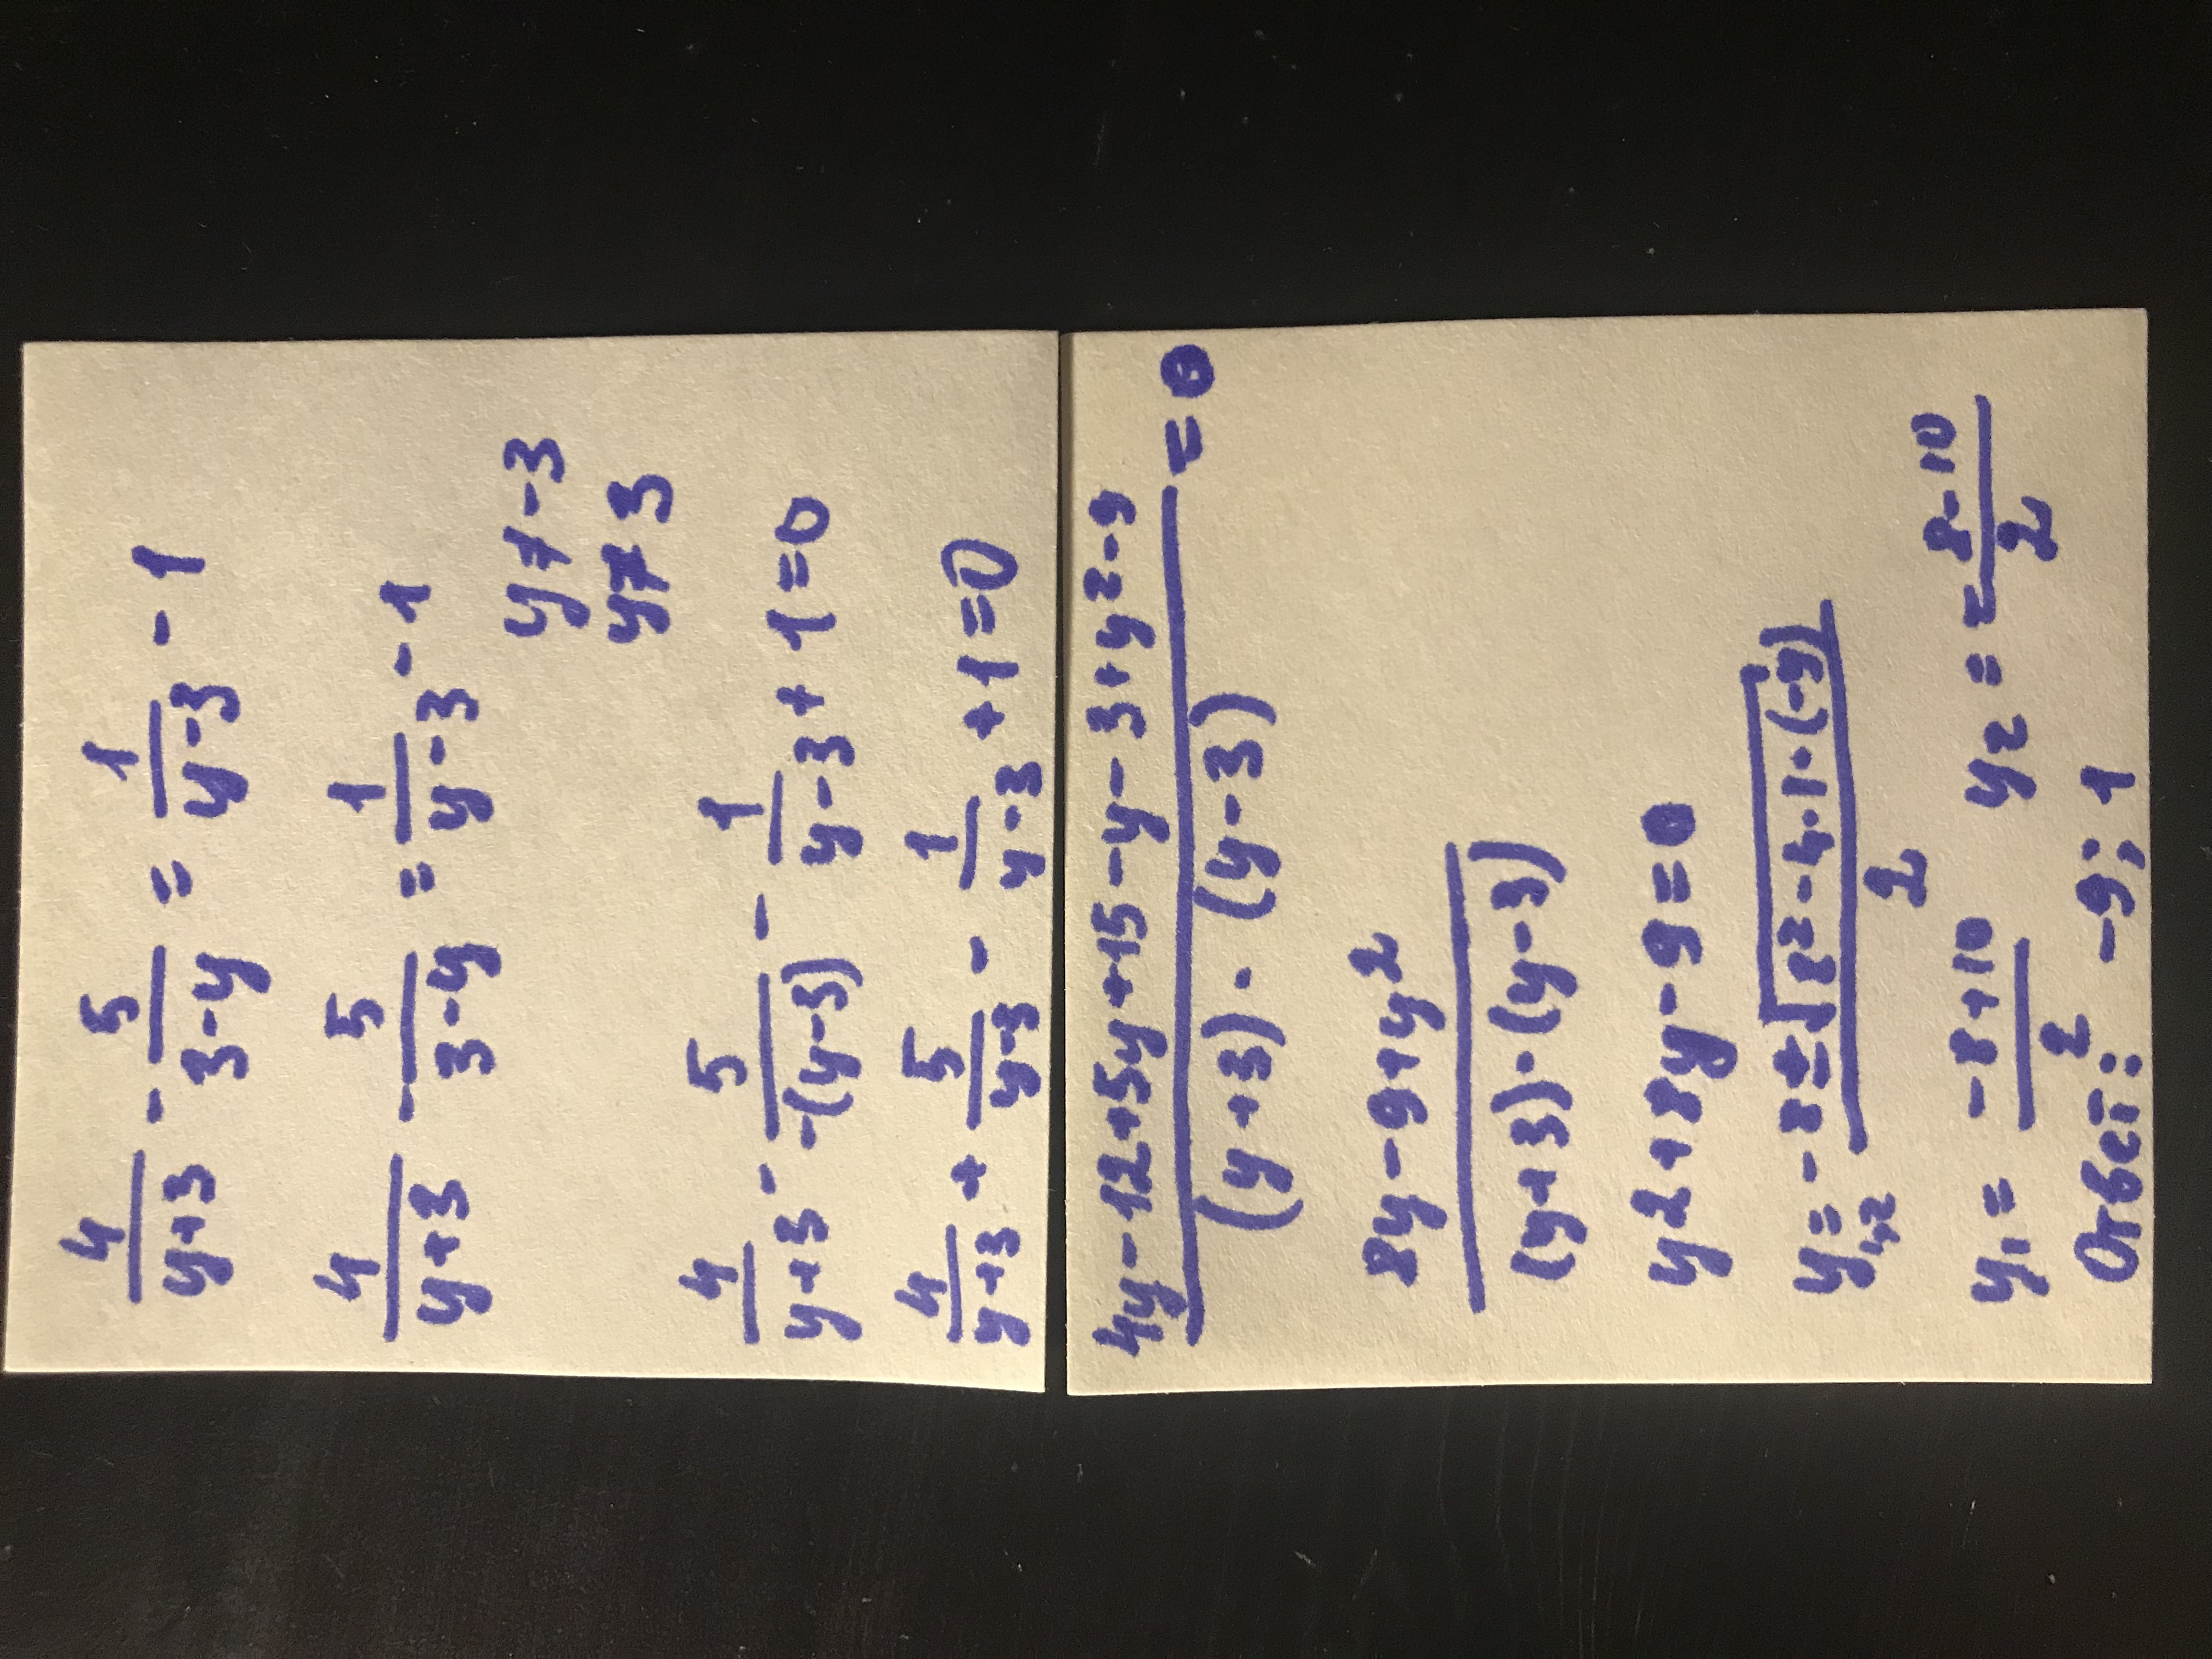 4/(y+3) - 5/(3-y) = 1/(y-3) - 1
4/(y+3) - 5/(3-y) = 1/(y-3) - 1
y≠-3
y≠3
4/(y+3) - 5/(-(y-3)) - 1/(y-3) + 1=0
4/(y+3) + 5/(y-3) - 1/(y-3) + 1=0
(4y-12+5y+15-y-3+y²-9)/((y+3)·(y-3)) =0
(8y-9+y²)/((y+3)·(y-3))
y2+8y-9=0
y₁,₂= (-8±√(8²-4·1·(-9)))/2
y₁= (-8+10)/2 y₂ = (-8-10)/2
Ответ: -9; 1